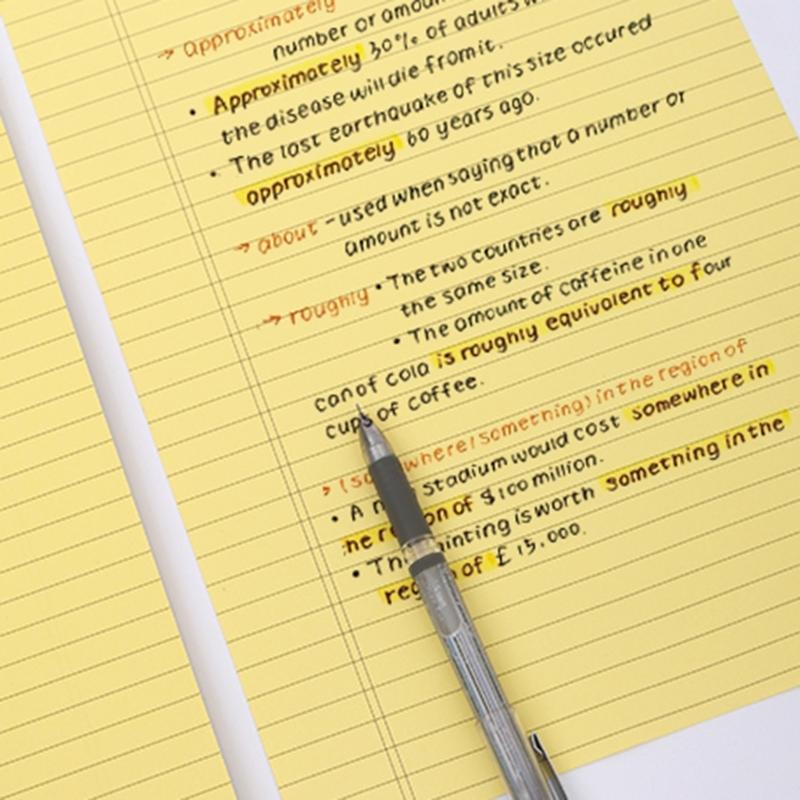 → approximately
number or amou
• Approximately 30% of adults w
the disease will die from it.
• The last earthquake of this size occured
approximately 60 years ago.
→ about - used when saying that a number or
amount is not exact.
→ roughly • The two countries are roughly
the same size.
• The amount of caffeine in one
can of cola is roughly equivalent to four
cups of coffee.
→ (so where/something) in the region of
• A n stadium would cost somewhere in
he re on of $100 million.
• Th inting is worth something in the
reg of £15.000.